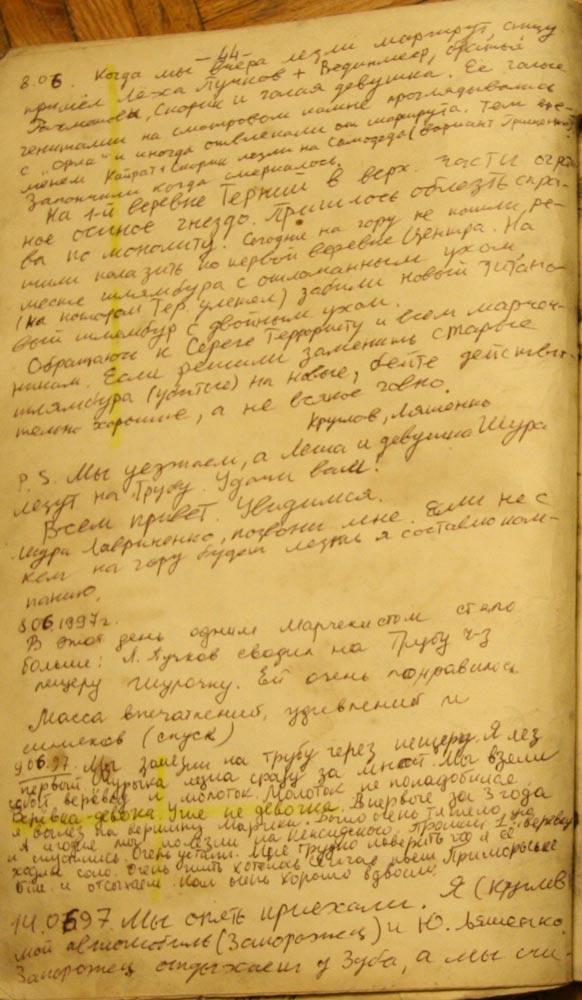 - 44 -
8.06. Когда мы вчера лезли маршрут, снизу
пришёл Лёха Пучков + Вединмеер, братья
Рахмановы, Скорик и голая девушка. Её голые
гениталии на смотровом камне проглядывались
с "Орла" и иногда отвлекали от маршрута. Тем вре-
менем Кайрат + Скорик лезли на Самоеда (вариант
Закончили когда смеркалось.
На 1-й веревке Терний в верх. части огром-
ное осиное гнездо. Пришлось облезть спра-
ва по монолиту. Сегодня на гору не пошли, ре-
шили полазить по первой веревке Центра. На
месте шлямбура с отломанным ухом,
(на котором Тер. улетел) забили новый титано-
вый шлямбур с двойным ухом.
Обращаюсь к Сереге Террористу и всем марчек-
никам. Если решили заменить старые
шлямбура (убитые) на новые, бейте действи-
тельно хорошие, а не всякое говно.
Круглов, Ляшенко
P.S. Мы уезжаем, а Леша и девушка Шура
лезут на Трубу. Удачи вам!
Всем привет. Увидимся.
Шура Лавриненко, позвони мне. Если не с
кем на гору будет лезть я составлю ком-
панию.
8.06.1997г.
В этот день одним Марчекистом стало
больше: Л. Пучков сводил на Трубу ч-з
пещеру Шурочку. Ей очень понравилось
Масса впечатлений, удивлений и
(спуск)
9.06.97. Мы залезли на трубу через пещеру. Я лез
первый Шурыка лезла сразу за мной. Мы взяли
собой верёвку и молоток. Молоток не понадобился
Верёвка-девочка уже не девочка. Впервые за 3 года
я вылез на вершину Марчек. Было очень тяжело
А сегодня мы полезли на Прошли 1-ю верёвку
и спустились. Очень устали. Мне трудно поверить что я её
ходил соло. Очень пить хотелось сейчас пьём Приморское
и отдыхаем нам очень хорошо вдвоём.
14.0697 Мы опять приехали. Я (Круглов
мой автомобиль (Запорожец) и Ю. Ляшенко.
Запорожец отдыхает у Зуба, а мы сни-